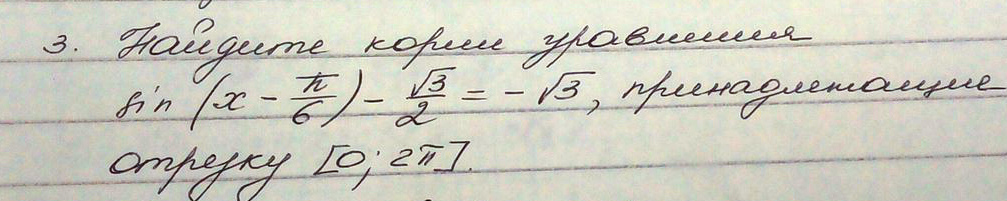 3. Найдите корни уравнения
sin (x - π/6) - √3/2 = - √3, принадлежащие
отрезку [0; 2π].